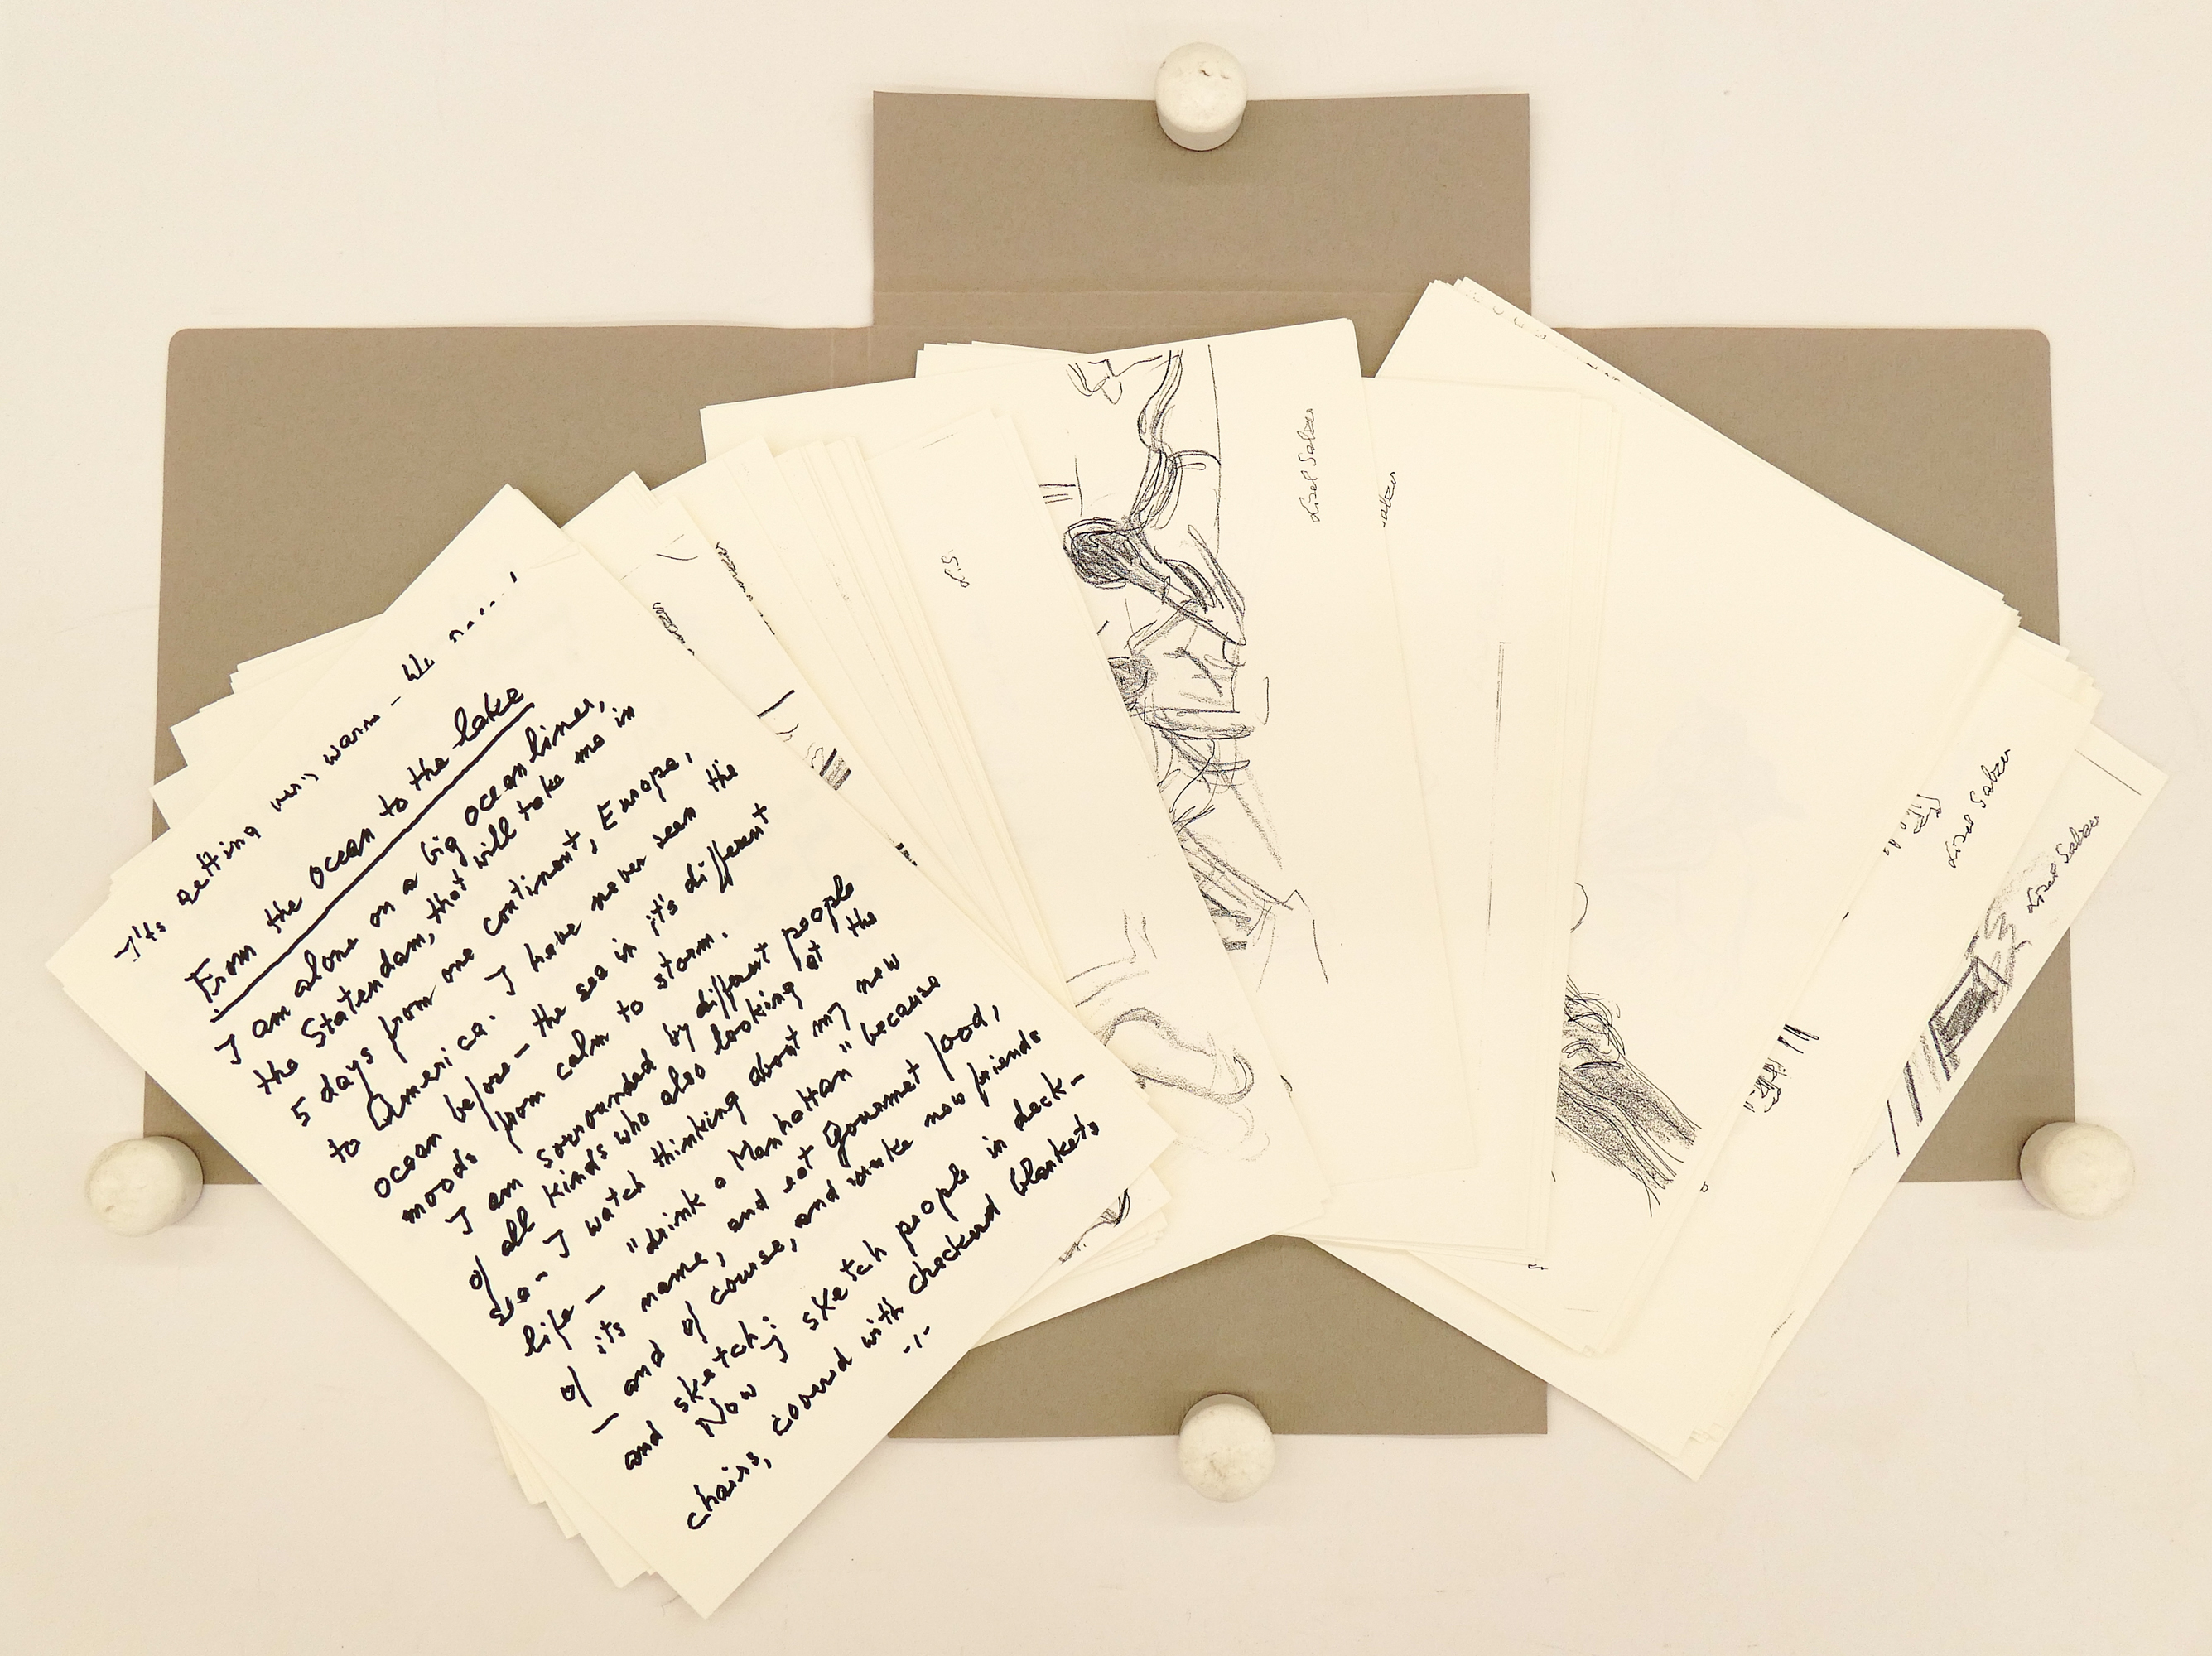 It's getting
From the Ocean to the lake
I am alone on a big Ocean liner,
the Statendam, that will take me in
5 days from one continent, Europe,
to America. I have never seen the
ocean before – the sea in it's different
moods from calm to storm.
I am surrounded by different people
of all kinds who also looking at the
sea. I watch thinking about my new
life – "drink a Manhattan" because
of its name, and eat gourmet food,
– and of course, and make new friends
and sketch:
Now I sketch people in deck-
chairs, covered with checkered blankets
-/-
L.S.
Lisel Salzer
alzer
Lisel Salzer
Lisel Salzer